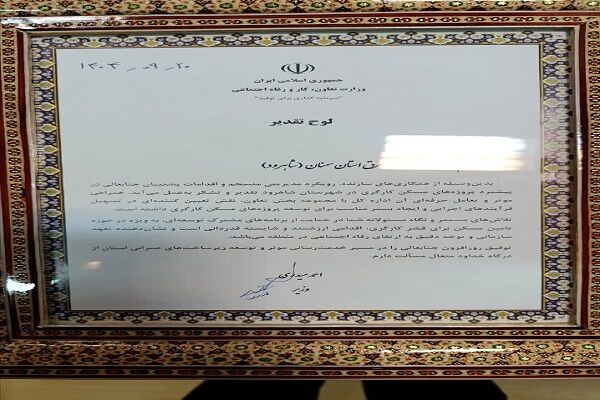 ۱۴۰۴،۰۹،۲۰
جمهوری اسلامی ایران
وزارت تعاون، کار و رفاه اجتماعی
"سرمایه گذاری برای تولید"
لوح تقدیر
برق استان سمنان (شاهرود)
بدین‌وسیله از همکاری‌های سازنده، رویکرد مدیریتی منسجم و اقدامات پشتیبان جنابعالی در
پیشبرد پروژه‌های مسکن کارگری در شهرستان شاهرود تقدیر و تشکر به‌عمل می‌آید. همراهی
موثر و تعامل حرفه‌ای آن اداره کل با مجموعه بخش تعاون، نقشی تعیین کننده‌ای در تسهیل
فرآیندهای اجرایی و ایجاد بستر مناسب برای توسعه پروژه‌های مسکن کارگری داشته است.
تلاش‌های مستمر و نگاه مسئولانه شما در حمایت از برنامه‌های مشترک توسعه‌ای، به ویژه در حوزه
تأمین مسکن برای قشر کارگری، اقدامی ارزشمند و شایسته قدردانی است و نشان‌دهنده تعهد
سازمانی و توجه دقیق به ارتقای رفاه اجتماعی در منطقه می‌باشد.
توفیق روزافزون جنابعالی را در مسیر خدمت‌رسانی موثر و توسعه زیرساخت‌های عمرانی استان از
درگاه خداوند متعال مسألت دارم.
احمد میدری
وزیر